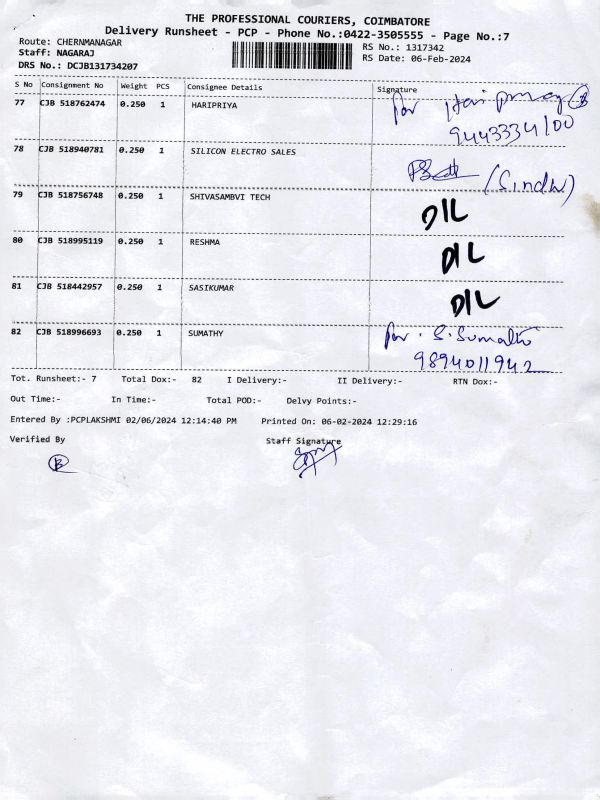 THE PROFESSIONAL COURIERS, COIMBATORE
Delivery Runsheet - PCP - Phone No.:0422-3505555 - Page No.:7
Route: CHERNMANAGAR
Staff: NAGARAJ
DRS No.: DCJB131734207
RS No.: 1317342
RS Date: 06-Feb-2024
S No Consignment No Weight PCS Consignee Details Signature
77 CJB 518762474 0.250 1 HARIPRIYA
78 CJB 518940781 0.250 1 SILICON ELECTRO SALES
(Sindhu)
79 CJB 518756748 0.250 1 SHIVASAMBVI TECH D/L
80 CJB 518995119 0.250 1 RESHMA D/L
81 CJB 518442957 0.250 1 SASIKUMAR D/L
82 CJB 518996693 0.250 1 SUMATHY S. Sumathi
9894011942
Tot. Runsheet:- 7 Total Dox:- 82 I Delivery:- II Delivery:- RTN Dox:-
Out Time:- In Time:- Total POD:- Delvy Points:-
Entered By :PCPLAKSHMI 02/06/2024 12:14:40 PM Printed On: 06-02-2024 12:29:16
Verified By Staff Signature